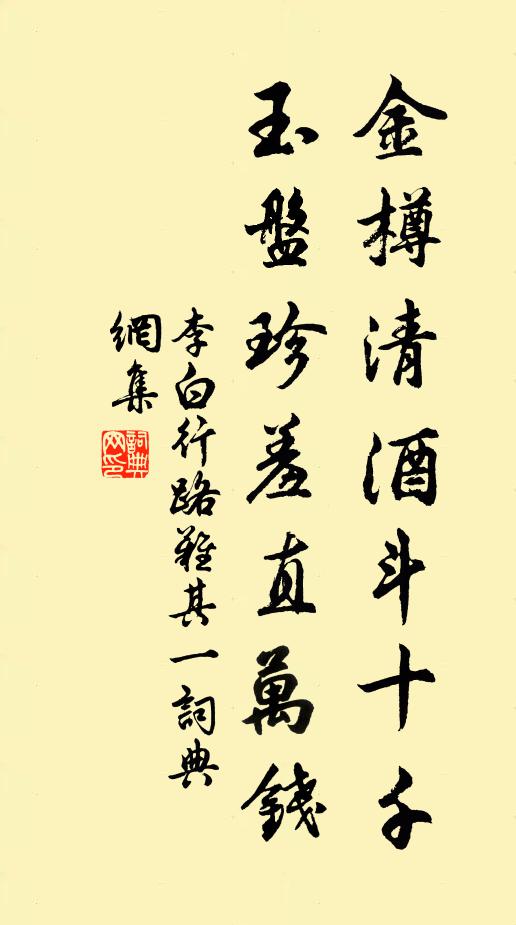 金樽清酒斗十千
玉盤珍羞直萬錢
李白行路難其一詞典
網集
詞典
网印